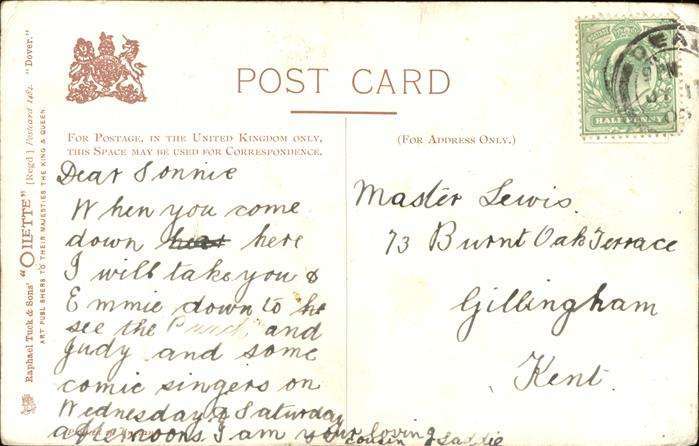 POST CARD
FOR POSTAGE, IN THE UNITED KINGDOM ONLY,
THIS SPACE MAY BE USED FOR CORRESPONDENCE.
(FOR ADDRESS ONLY.)
Raphael Tuck & Sons' "OILETTE" [Regd.] Postcard 1462. "Dover."
ART PUBLISHERS TO THEIR MAJESTIES THE KING & QUEEN
HALFPENNY
DEAL
Dear Sonnie
When you come
down here
I will take you &
Emmie down to
see the Punch and
Judy and some
comic singers on
Wednesday & Saturday
afternoons I am your loving
cousin Saddie
Master Lewis.
73 Burnt Oak Terrace
Gillingham
Kent.